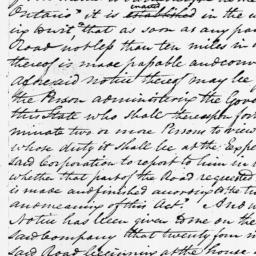 Ontario" it is enacted in the
in Trust, "that as soon as any pa
Road not less than ten miles in
thereof is made passable and conv
aforesaid notice thereof may be
the Person administering the Gove
this State who shall thereupon for
minate two or more Persons to view
whose duty it shall be at the Expe
said Corporation to report to him in
whether that part of the Road requested
is made and finished according to the tr
and meaning of this Act." And w
Notice has been given to me on the
said Company that twenty four m
said Road beginning at the house